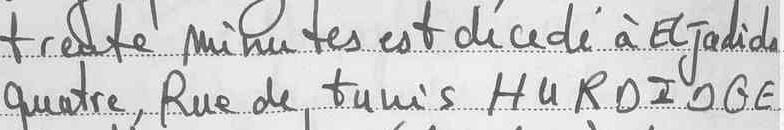 trente minutes est décédé à El Jadida
quatre, Rue de tunis HURDIDGE